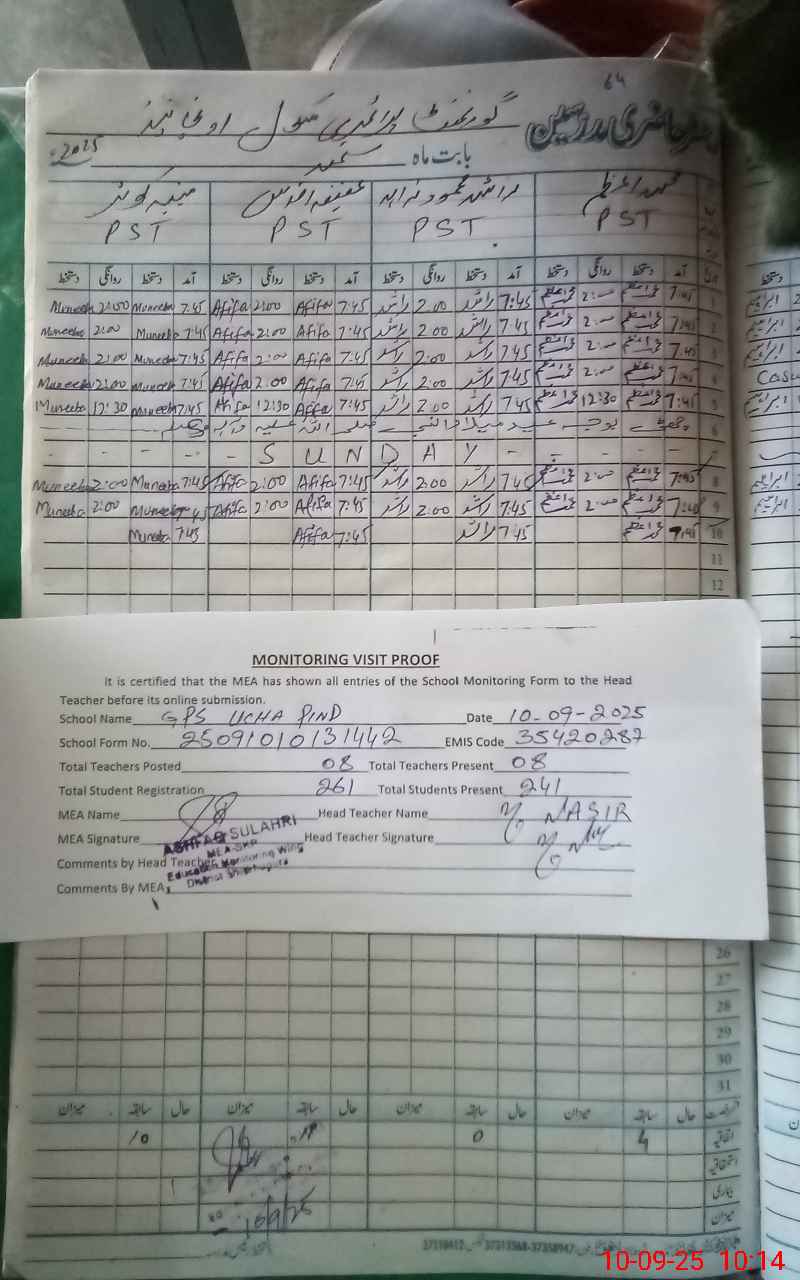 64
رجسٹر حاضری مدرسین
گورنمنٹ پرائمری سکول اونچا پنڈ
بابت ماہ ستمبر 2025ء
محمد اعظم راشد محمود عفیفہ اقدس منیبہ کوثر
PST PST PST PST
آمد دستخط روانگی دستخط آمد دستخط روانگی دستخط آمد دستخط روانگی دستخط آمد دستخط روانگی دستخط
1 7:45 محمد اعظم 2:00 محمد اعظم 7:45 راشد 2:00 راشد 7:45 Afifa 2:00 Afifa 7:45 Muneeba 2:00 Muneeba
2 7:45 محمد اعظم 2:00 محمد اعظم 7:45 راشد 2:00 راشد 7:45 Afifa 2:00 Afifa 7:45 Muneeba 2:00 Muneeba
3 7:45 محمد اعظم 2:00 محمد اعظم 7:45 راشد 2:00 راشد 7:45 Afifa 2:00 Afifa 7:45 Muneeba 2:00 Muneeba
4 7:45 محمد اعظم 2:00 محمد اعظم 7:45 راشد 2:00 راشد 7:45 Afifa 2:00 Afifa 7:45 Muneeba 2:00 Muneeba
5 7:45 محمد اعظم 12:30 محمد اعظم 7:45 راشد 2:00 راشد 7:45 Afifa 12:30 Afifa 7:45 Muneeba 12:30 Muneeba
6 بوجہ عید میلاد النبی صلی اللہ علیہ وآلہ وسلم
7 SUNDAY
8 7:45 محمد اعظم 2:00 محمد اعظم 7:45 راشد 2:00 راشد 7:45 Afifa 2:00 Afifa 7:45 Muneeba 2:00 Muneeba
9 7:45 محمد اعظم 2:00 محمد اعظم 7:45 راشد 2:00 راشد 7:45 Afifa 2:00 Afifa 7:45 Muneeba 2:00 Muneeba
10 7:45 محمد اعظم 7:45 راشد 7:45 Afifa 7:45 Muneeba
11
12
MONITORING VISIT PROOF
It is certified that the MEA has shown all entries of the School Monitoring Form to the Head
Teacher before its online submission.
School Name GPS UCHA PIND Date 10-09-2025
School Form No. 25091010131442 EMIS Code 35420287
Total Teachers Posted 08 Total Teachers Present 08
Total Student Registration 261 Total Students Present 241
MEA Name Head Teacher Name M NASIR
MEA Signature Head Teacher Signature
ASHFAQ SULAHRI
MEA-SKP
Education Monitoring Wing
District Sheikhupura
Comments by Head Teacher
Comments By MEA
26
27
28
29
30
31
رخصت حال سابقہ میزان حال سابقہ میزان حال سابقہ میزان حال سابقہ میزان
اتفاقیہ 4 0 10
استحقاقیہ
بیماری
میزان
10/9/25
10-09-25 10:14